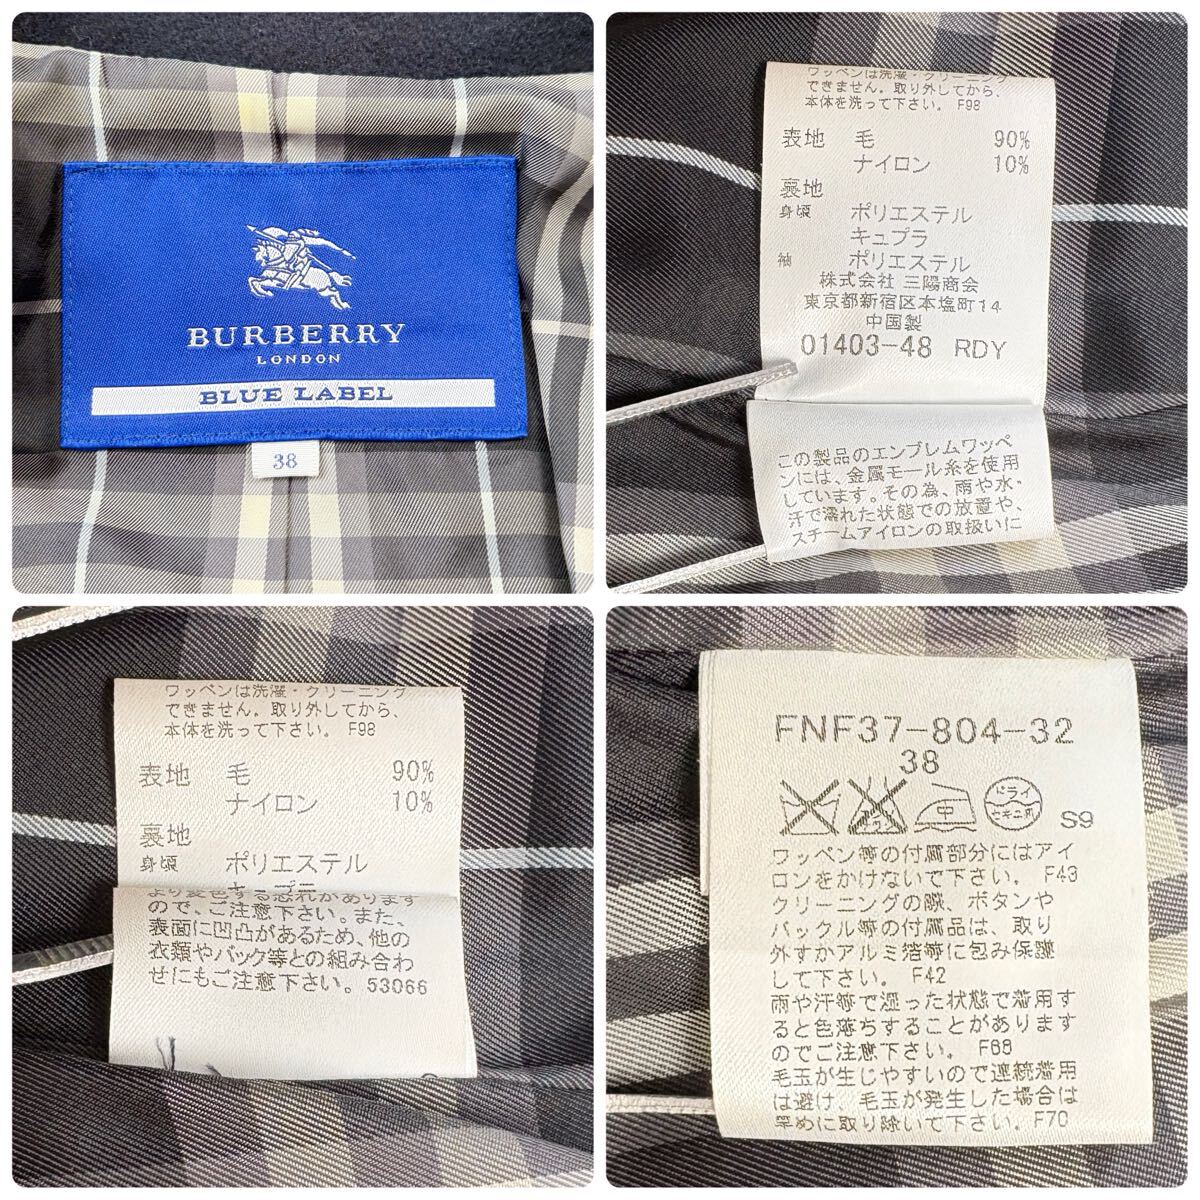 BURBERRY
LONDON
BLUE LABEL
38
ワッペンは洗濯・クリーニング
できません。取り外してから、
本体を洗って下さい。 F98
表地 毛 90%
ナイロン 10%
裏地
身頃 ポリエステル
キュプラ
袖 ポリエステル
株式会社 三陽商会
東京都新宿区本塩町14
中国製
01403-48 RDY
この製品のエンブレムワッペ
ンには、金属モール糸を使用
しています。その為、雨や水・
汗で濡れた状態での放置や、
スチームアイロンの取扱いに
ワッペンは洗濯・クリーニング
できません。取り外してから、
本体を洗って下さい。 F98
表地 毛 90%
ナイロン 10%
裏地
身頃 ポリエステル
キュプラ
より変色する恐れがあります
ので、ご注意下さい。また、
表面に凹凸があるため、他の
衣類やバック等との組み合わ
せにもご注意下さい。53066
FNF37-804-32
38
中
ドライ
セキユ系
S9
ワッペン等の付属部分にはアイ
ロンをかけないで下さい。 F43
クリーニングの際、ボタンや
バックル等の付属品は、取り
外すかアルミ箔等に包み保護
して下さい。 F42
雨や汗等で湿った状態で着用す
ると色落ちすることがあります
のでご注意下さい。 F68
毛玉が生じやすいので連続着用
は避け、毛玉が発生した場合は
早めに取り除いて下さい。F70